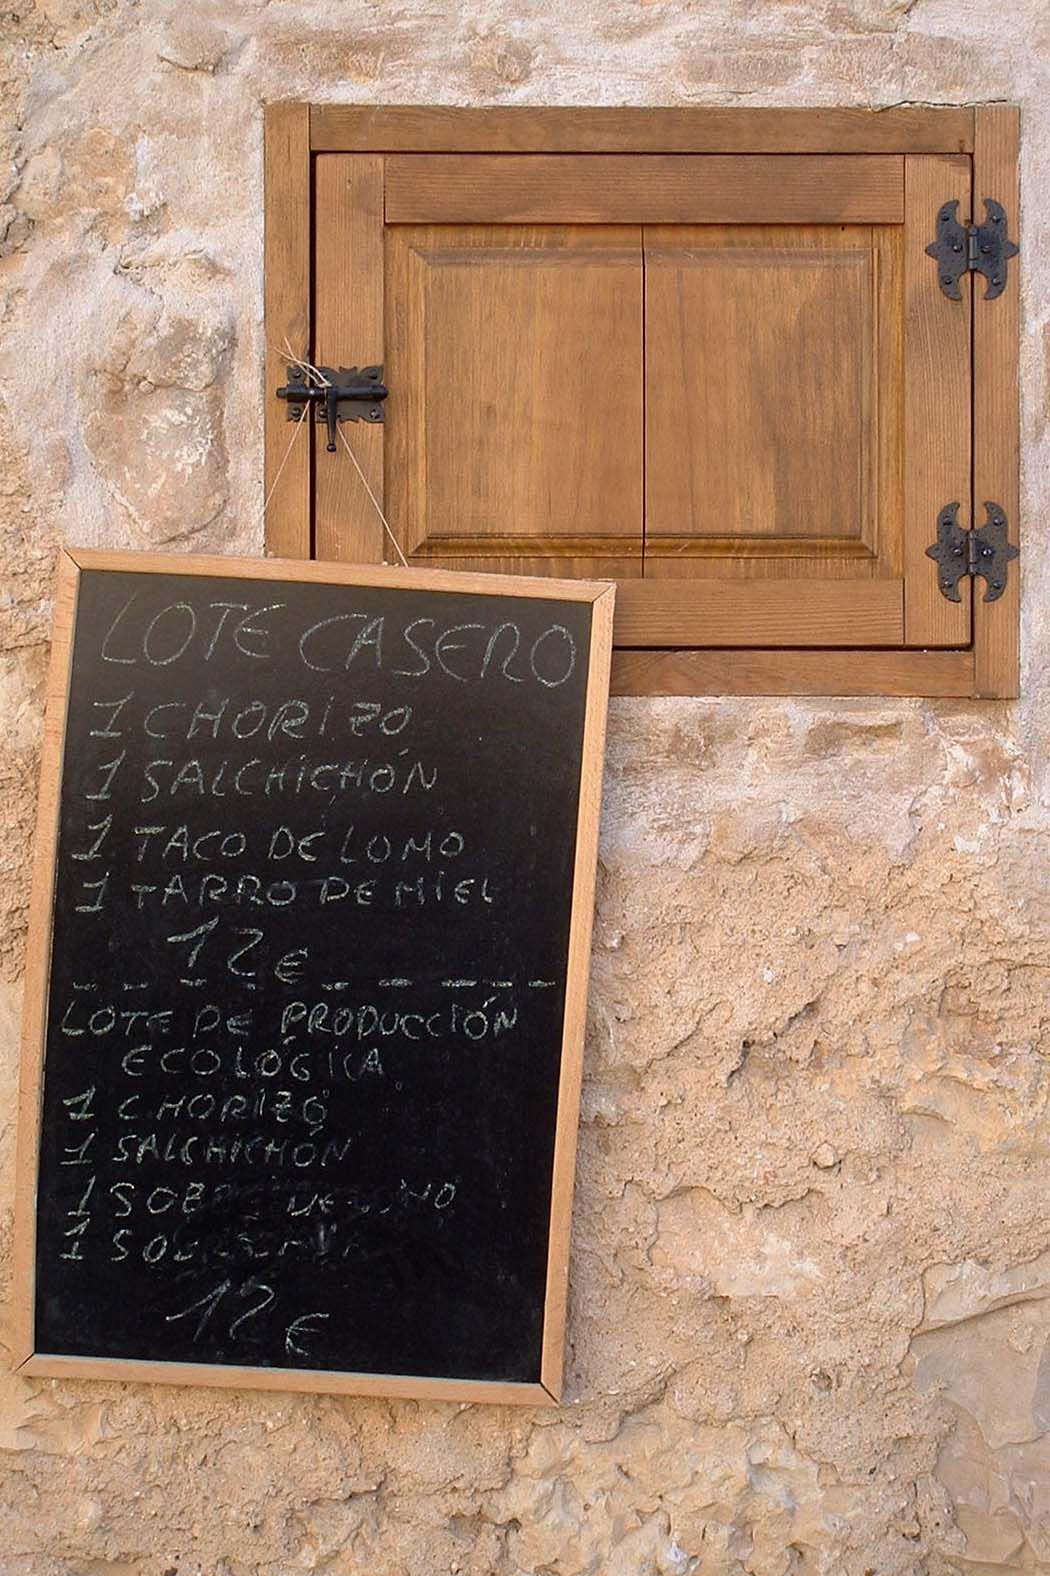 LOTE CASERO
1 CHORIZO
1 SALCHICHÓN
1 TACO DE LOMO
1 TARRO DE MIEL
12€
LOTE DE PRODUCCIÓN
ECOLÓGICA
1 CHORIZO
1 SALCHICHÓN
1 DE
1
12€